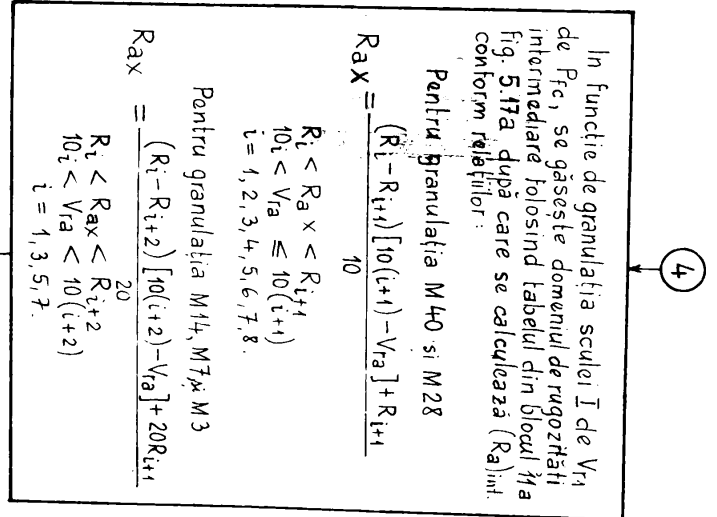 4
In functie de granulația sculei I de Vr1
de Pfc, se găsește domeniul de rugozități
intermediare folosind tabelul din blocul 11a
fig. 5.17a după care se calculează (Ra)int.
conform relațiilor:
Pentru granulația M40 si M28
Rax = (Ri-Ri+1)[10(i+1)-Vra]+Ri+1
10
Ri < Rax < Ri+1
10i < Vra ≤ 10(i+1)
i = 1,2,3,4,5,6,7,8.
Pentru granulația M14, M7, și M3
Rax = (Ri-Ri+2)[10(i+2)-Vra]+20Ri+1
20
Ri < Rax < Ri+2
10i < Vra < 10(i+2)
i = 1,3,5,7.